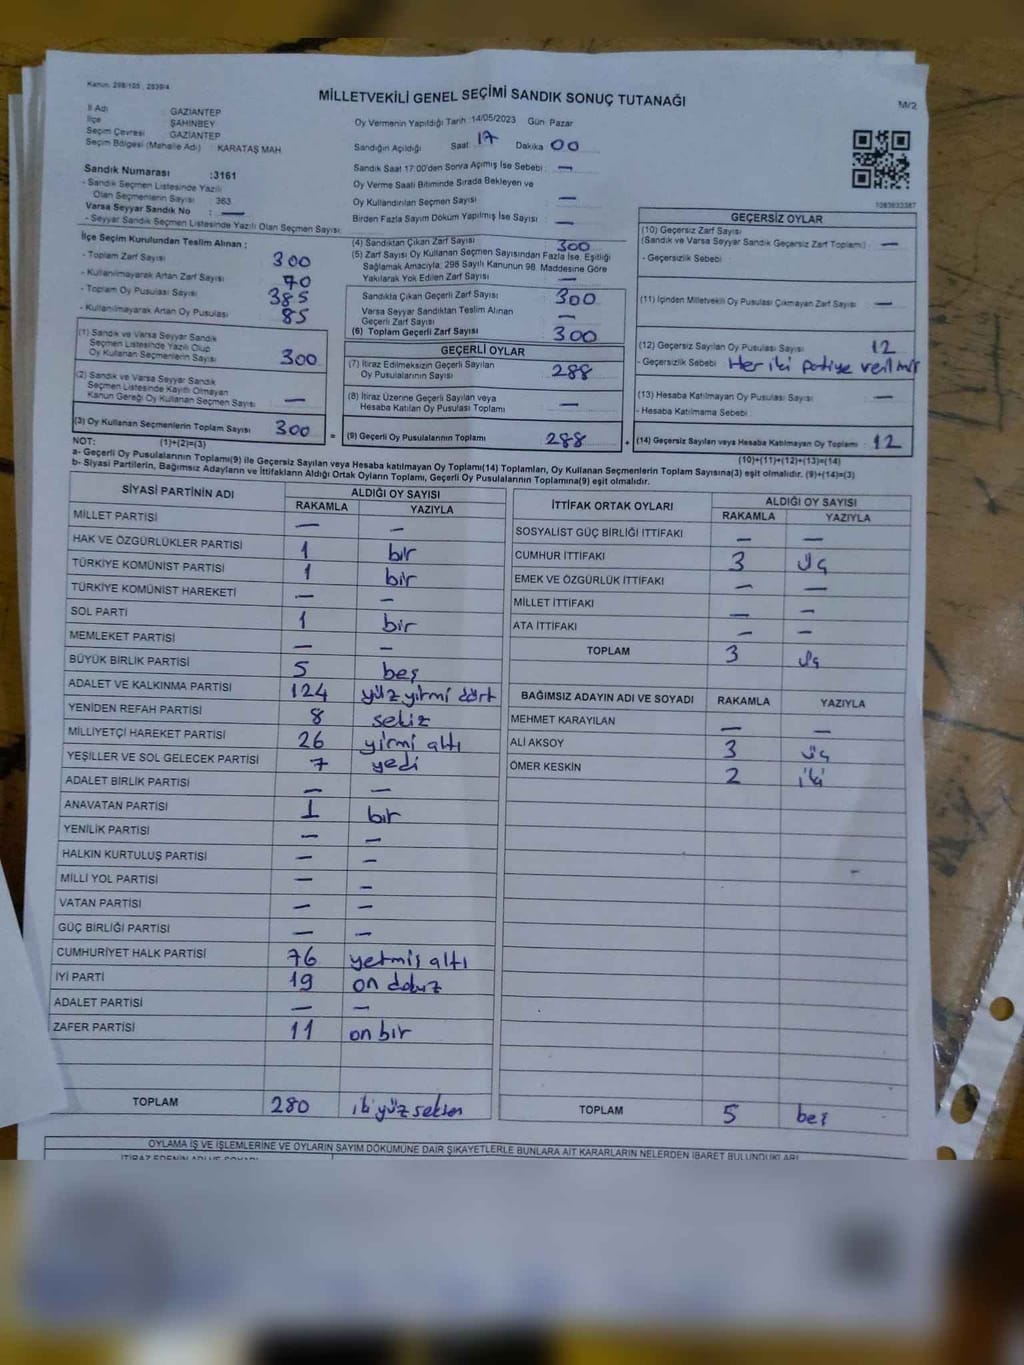 Kanun: 298/105, 2839/4
MİLLETVEKİLİ GENEL SEÇİMİ SANDIK SONUÇ TUTANAĞI
M/2
İl Adı : GAZİANTEP
İlçe : ŞAHİNBEY
Seçim Çevresi : GAZİANTEP
Seçim Bölgesi (Mahalle Adı) : KARATAŞ MAH
Sandık Numarası :3161
- Sandık Seçmen Listesinde Yazılı
Olan Seçmenlerin Sayısı : 363
Varsa Seyyar Sandık No : —
- Seyyar Sandık Seçmen Listesinde Yazılı Olan Seçmen Sayısı:
Oy Vermenin Yapıldığı Tarih :14/05/2023 Gün: Pazar
Sandığın Açıldığı Saat : 17 Dakika : 00
Sandık Saat 17:00'den Sonra Açımış İse Sebebi : —
Oy Verme Saati Bitiminde Sırada Bekleyen ve
Oy Kullandırılan Seçmen Sayısı : —
Birden Fazla Sayım Döküm Yapılmış İse Sayısı : —
İlçe Seçim Kurulundan Teslim Alınan :
- Toplam Zarf Sayısı : 300
- Kullanılmayarak Artan Zarf Sayısı : 70
- Toplam Oy Pusulası Sayısı : 385
- Kullanılmayarak Artan Oy Pusulası : 85
(1) Sandık ve Varsa Seyyar Sandık
Seçmen Listesinde Yazılı Olup
Oy Kullanan Seçmenlerin Sayısı : 300
(2) Sandık ve Varsa Seyyar Sandık
Seçmen Listesinde Kayıtlı Olmayan
Kanun Gereği Oy Kullanan Seçmen Sayısı : —
(3) Oy Kullanan Seçmenlerin Toplam Sayısı : 300
(4) Sandıktan Çıkan Zarf Sayısı : 300
(5) Zarf Sayısı Oy Kullanan Seçmen Sayısından Fazla İse, Eşitliği
Sağlamak Amacıyla, 298 Sayılı Kanunun 98. Maddesine Göre
Yakılarak Yok Edilen Zarf Sayısı : —
Sandıkta Çıkan Geçerli Zarf Sayısı : 300
Varsa Seyyar Sandıktan Teslim Alınan
Geçerli Zarf Sayısı : —
(6) Toplam Geçerli Zarf Sayısı : 300
GEÇERLİ OYLAR
(7) İtiraz Edilmeksizin Geçerli Sayılan
Oy Pusulalarının Sayısı : 288
(8) İtiraz Üzerine Geçerli Sayılan veya
Hesaba Katılan Oy Pusulası Toplamı : —
= (9) Geçerli Oy Pusulalarının Toplamı : 288
1083633387
GEÇERSİZ OYLAR
(10) Geçersiz Zarf Sayısı
(Sandık ve Varsa Seyyar Sandık Geçersiz Zarf Toplamı) : —
- Geçersizlik Sebebi :
(11) İçinden Milletvekili Oy Pusulası Çıkmayan Zarf Sayısı : —
(12) Geçersiz Sayılan Oy Pusulası Sayısı : 12
- Geçersizlik Sebebi : Her iki patiye verilmiş
(13) Hesaba Katılmayan Oy Pusulası Sayısı : —
- Hesaba Katılmama Sebebi :
+ (14) Geçersiz Sayılan veya Hesaba Katılmayan Oy Toplamı : 12
NOT: (1)+(2)=(3)
(10)+(11)+(12)+(13)=(14)
a- Geçerli Oy Pusulalarının Toplamı(9) ile Geçersiz Sayılan veya Hesaba katılmayan Oy Toplamı(14) Toplamları, Oy Kullanan Seçmenlerin Toplam Sayısına(3) eşit olmalıdır. (9)+(14)=(3)
b- Siyasi Partilerin, Bağımsız Adayların ve İttifakların Aldığı Ortak Oyların Toplamı, Geçerli Oy Pusulalarının Toplamına(9) eşit olmalıdır.
SİYASİ PARTİNİN ADI ALDIĞI OY SAYISI
RAKAMLA YAZIYLA
MİLLET PARTİSİ — —
HAK VE ÖZGÜRLÜKLER PARTİSİ 1 bir
TÜRKİYE KOMÜNİST PARTİSİ 1 bir
TÜRKİYE KOMÜNİST HAREKETİ — —
SOL PARTİ 1 bir
MEMLEKET PARTİSİ — —
BÜYÜK BİRLİK PARTİSİ 5 beş
ADALET VE KALKINMA PARTİSİ 124 yüz yirmi dört
YENİDEN REFAH PARTİSİ 8 sekiz
MİLLİYETÇİ HAREKET PARTİSİ 26 yirmi altı
YEŞİLLER VE SOL GELECEK PARTİSİ 7 yedi
ADALET BİRLİK PARTİSİ — —
ANAVATAN PARTİSİ 1 bir
YENİLİK PARTİSİ — —
HALKIN KURTULUŞ PARTİSİ — —
MİLLİ YOL PARTİSİ — —
VATAN PARTİSİ — —
GÜÇ BİRLİĞİ PARTİSİ — —
CUMHURİYET HALK PARTİSİ 76 yetmiş altı
İYİ PARTİ 19 on dokuz
ADALET PARTİSİ — —
ZAFER PARTİSİ 11 on bir
TOPLAM 280 iki yüz seksen
İTTİFAK ORTAK OYLARI ALDIĞI OY SAYISI
RAKAMLA YAZIYLA
SOSYALİST GÜÇ BİRLİĞİ İTTİFAKI — —
CUMHUR İTTİFAKI 3 üç
EMEK VE ÖZGÜRLÜK İTTİFAKI — —
MİLLET İTTİFAKI — —
ATA İTTİFAKI — —
TOPLAM 3 üç
BAĞIMSIZ ADAYIN ADI VE SOYADI RAKAMLA YAZIYLA
MEHMET KARAYILAN — —
ALİ AKSOY 3 üç
ÖMER KESKİN 2 iki
TOPLAM 5 beş
OYLAMA İŞ VE İŞLEMLERİNE VE OYLARIN SAYIM DÖKÜMÜNE DAİR ŞİKAYETLERLE BUNLARA AİT KARARLARIN NELERDEN İBARET BULUNDUKLARI